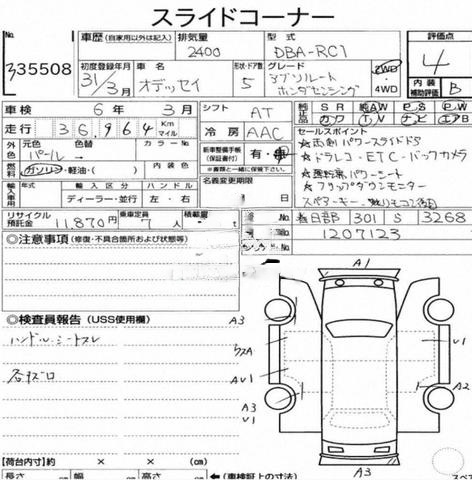 スライドコーナー
35508
車歴 (自家用以外は記入)
排気量
2400
型式
DBA-RC1
評価点
4
初度登録年月
31/3月
車名
オデッセイ
形状・ドア数
5
グレード
アブソルート
ホンダセンシング
2WD
4WD
内装
補助評価
B
車検 6年 3月
シフト AT
純正品
SR AW PS PW
カワ TV ナビ エアB
走行 36,964 Km マイル
冷房 AAC
セールスポイント
外色
元色
パール→
色替
カラーNo
新車整備手帳
(保証書付)
有・無
☆両側パワースライドドS
☆ドラレコ・ETC・バックカメラ
燃料
ガソリン・軽油・( )
内装色
☆運転席パワーシート
☆フリップダウンモニター
輸入車用
輸入区分
ハンドル
ディーラー・並行
左・右
名義変更期限
スペアーキー、
リサイクル
預託金
11,870円
乗車定員
7人
積載量
春日部 301 S 3268
1207123
◎注意事項 (修復・不具合箇所および状態等)
A1
◎検査員報告 (USS使用欄)
A3
U1
ハンドル・シートスレ
ウスA
各キズロ
AU1
A2
A3
U1
A3
【荷台内寸】 × × (cm)
長さ cm 幅 cm 高さ
←(車検証上の寸法)
スペア